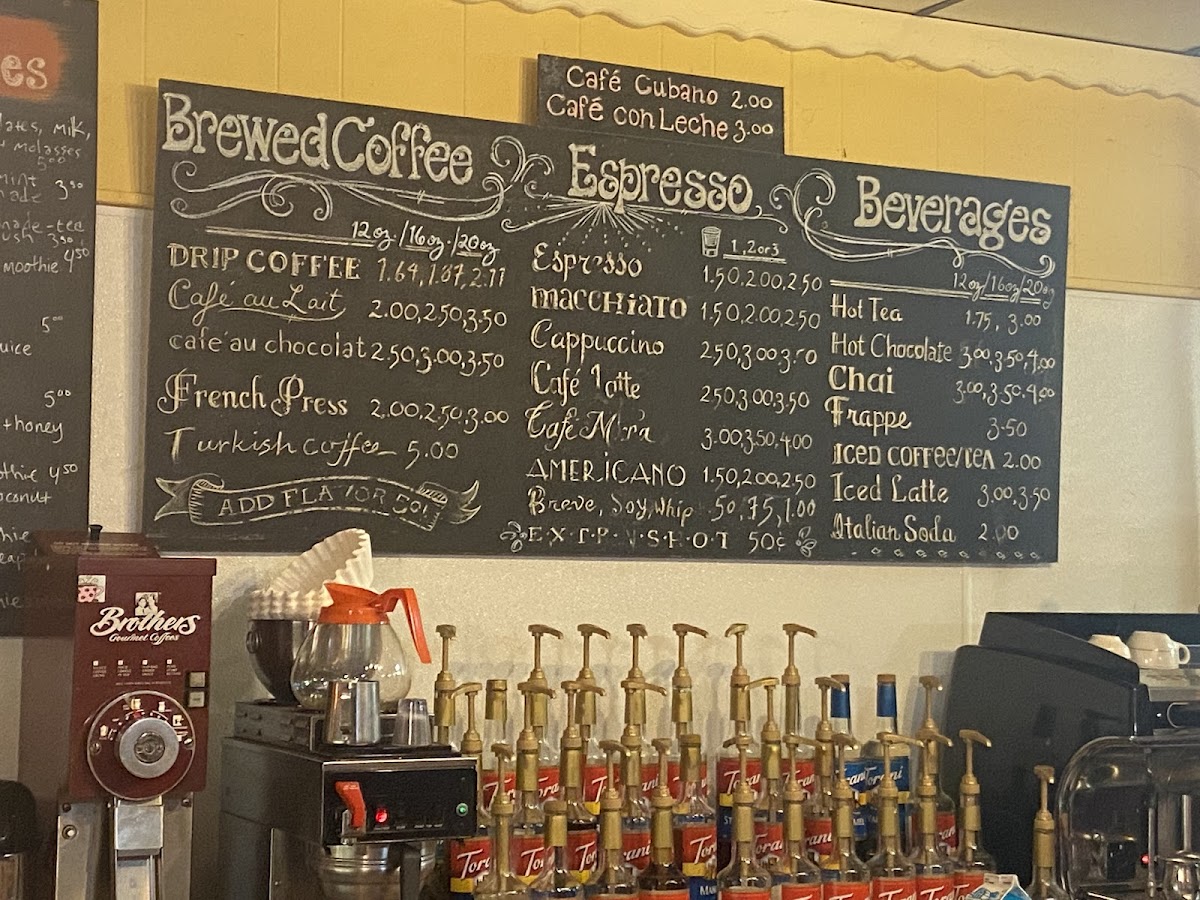 es
lates, milk,
molasses
5.00
mint 3.50
made
made-tea
ush 3.50
moothie 4.50
5.00
uice
5.00
+ honey
othie 4.50
oconut
Café Cubano 2.00
Café con Leche 3.00
Brewed Coffee
12oz/16oz/20oz
DRIP COFFEE 1.64, 1.87, 2.11
Café au Lait 2.00, 2.50, 3.50
café au chocolat 2.50, 3.00, 3.50
French Press 2.00, 2.50, 3.00
Turkish coffee 5.00
ADD FLAVOR 50¢
Espresso
1, 2 or 3
Espresso 1.50, 2.00, 2.50
MACCHIATO 1.50, 2.00, 2.50
Cappuccino 2.50, 3.00, 3.50
Café Latte 2.50, 3.00, 3.50
Café Mocha 3.00, 3.50, 4.00
AMERICANO 1.50, 2.00, 2.50
Breve, Soy, Whip .50, .75, 1.00
EXTRA SHOT 50¢
Beverages
12oz/16oz/20oz
Hot Tea 1.75, 3.00
Hot Chocolate 3.00, 3.50, 4.00
Chai 3.00, 3.50, 4.00
Frappe 3.50
ICED COFFEE/TEA 2.00
Iced Latte 3.00, 3.50
Italian Soda 2.00
Brothers
Gourmet Coffees
Torani